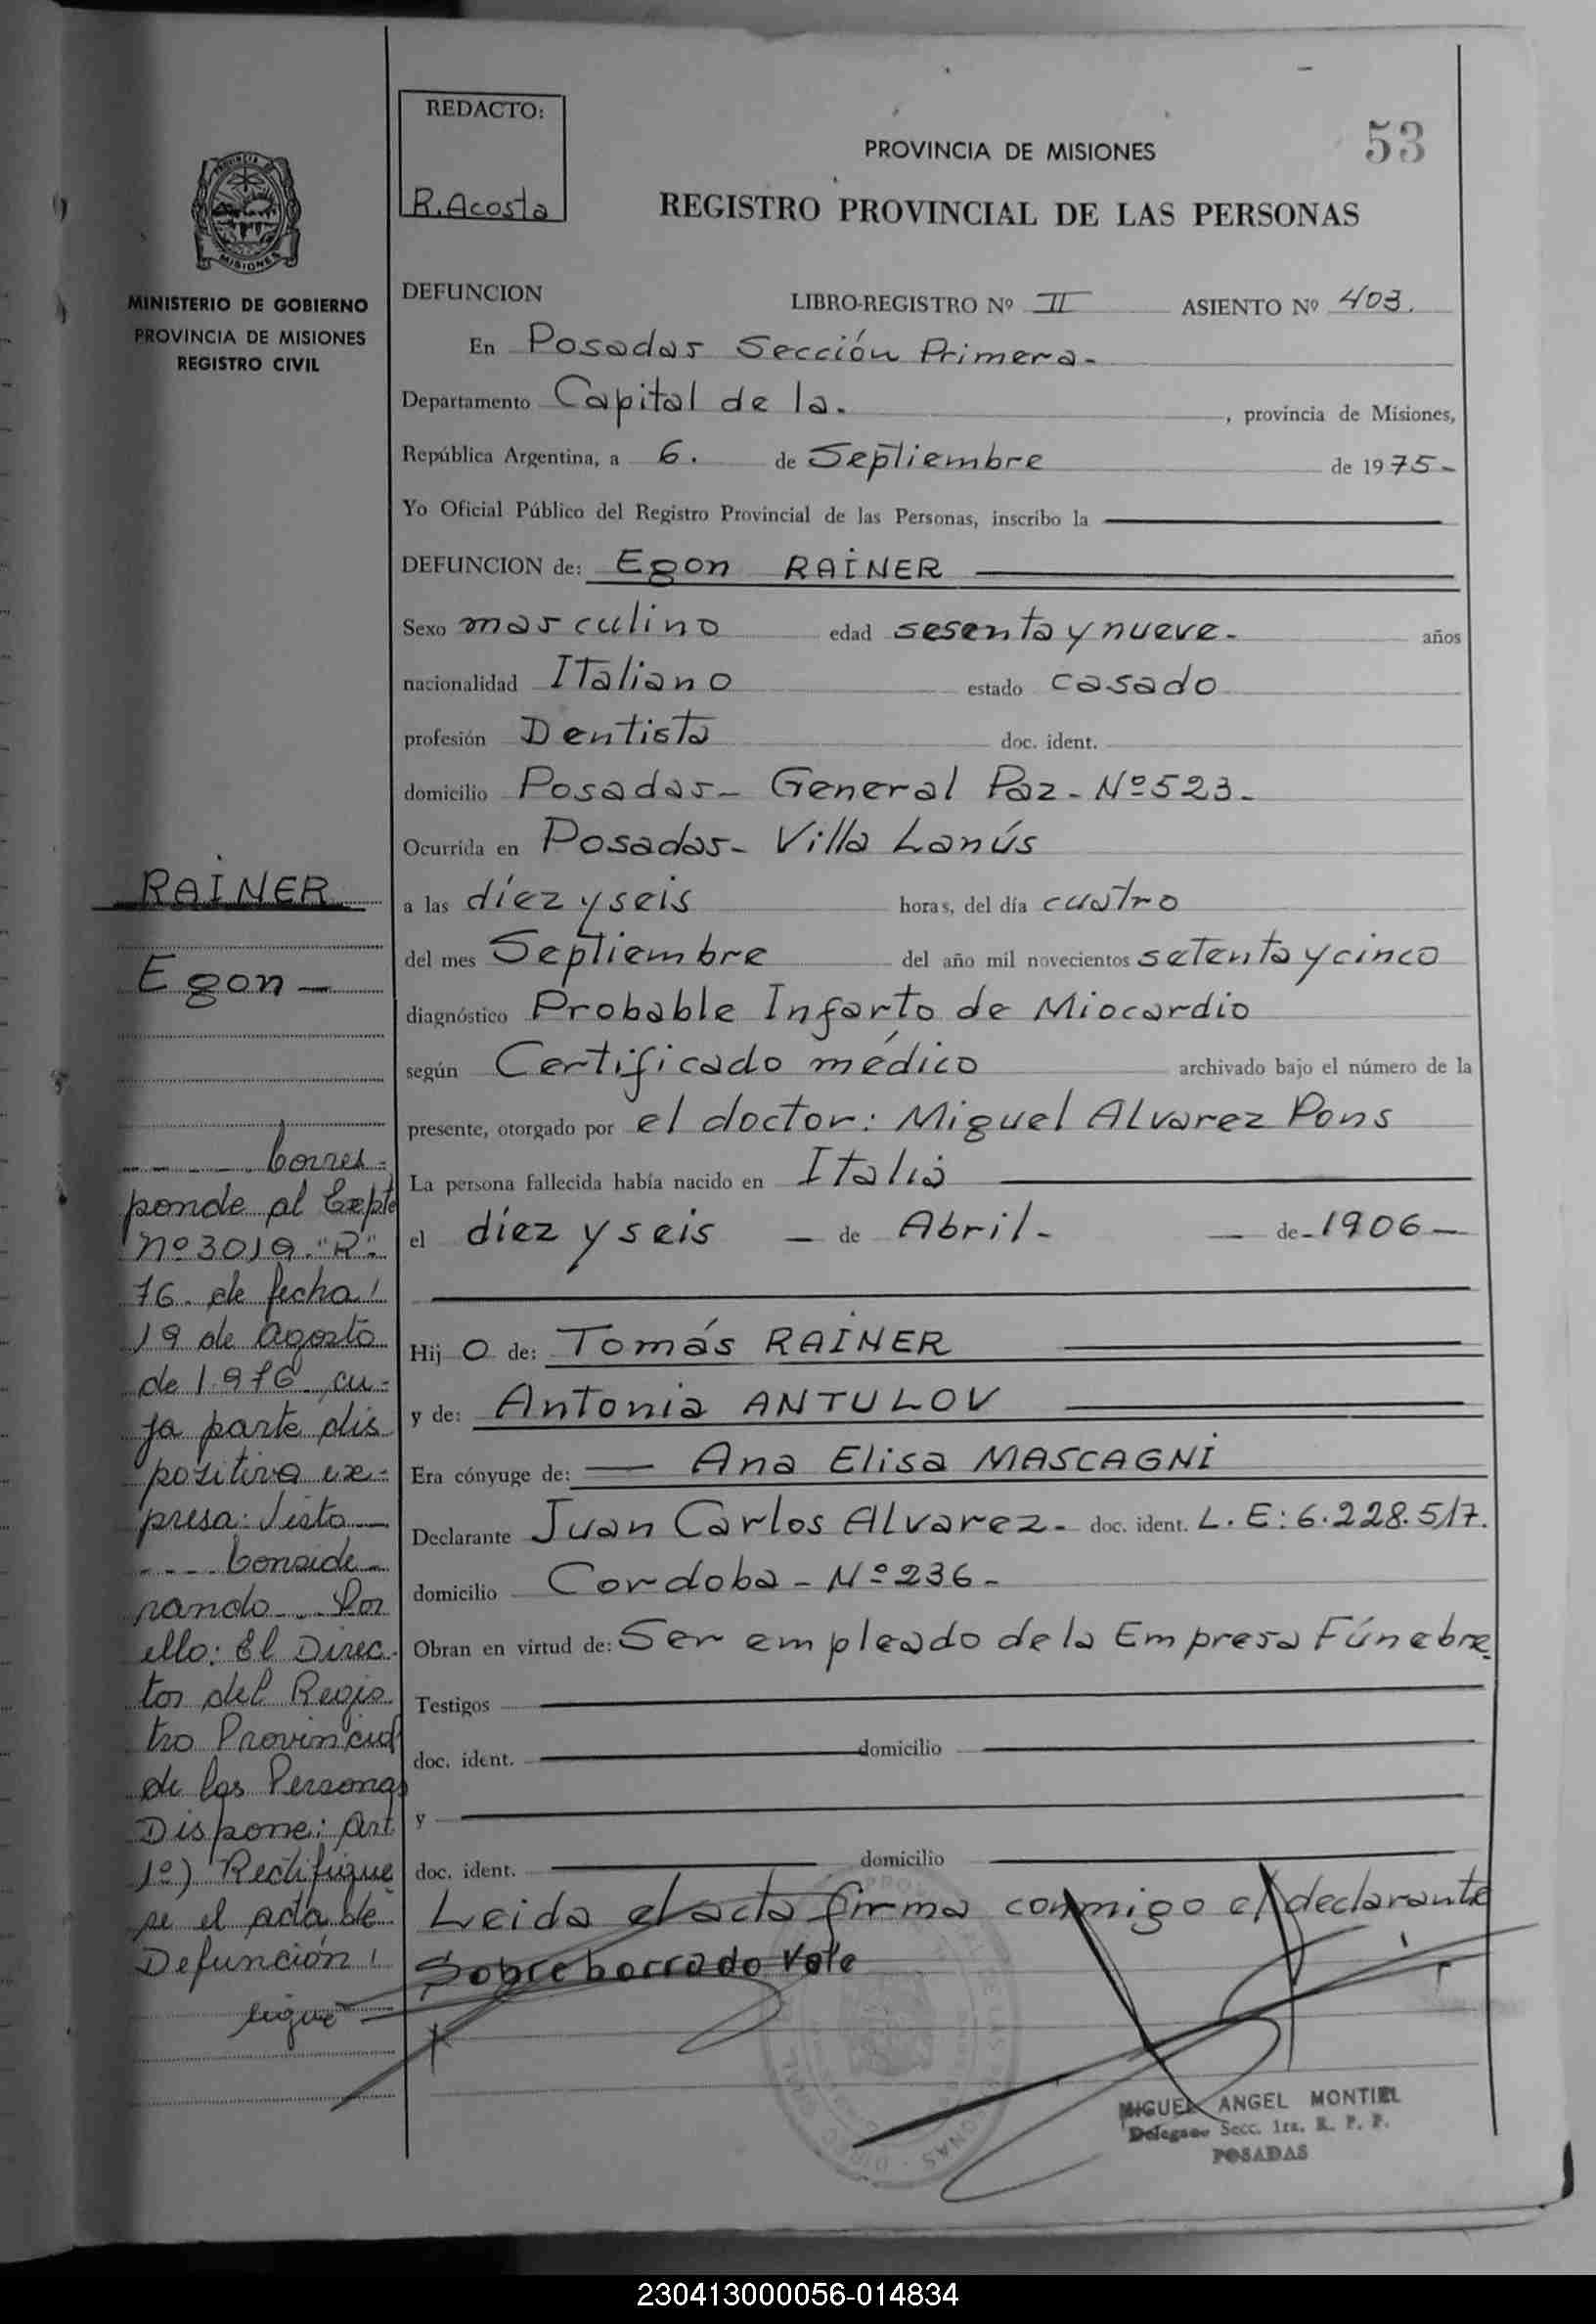 REDACTO:
R. Acosta
53
PROVINCIA DE MISIONES
REGISTRO PROVINCIAL DE LAS PERSONAS
MISIONES
MINISTERIO DE GOBIERNO
PROVINCIA DE MISIONES
REGISTRO CIVIL
DEFUNCION LIBRO-REGISTRO Nº II ASIENTO Nº 403.
En Posadas Sección Primera-
Departamento Capital de la. , provincia de Misiones,
República Argentina, a 6. de Septiembre de 1975-
Yo Oficial Público del Registro Provincial de las Personas, inscribo la
DEFUNCION de: Egon RAINER
Sexo masculino edad sesenta y nueve- años
nacionalidad Italiano estado casado
profesión Dentista doc. ident.
domicilio Posadas- General Paz- Nº 523-
Ocurrida en Posadas- Villa Lanús
a las díez y seis horas, del día cuatro
del mes Septiembre del año mil novecientos setenta y cinco
diagnóstico Probable Infarto de Miocardio
según Certificado médico archivado bajo el número de la
presente, otorgado por el doctor: Miguel Alvarez Pons
La persona fallecida había nacido en Italia
el díez y seis - de Abril- - de-1906-
Hij o de: Tomás RAINER
y de: Antonia ANTULOV
Era cónyuge de: - Ana Elisa MASCAGNI
Declarante Juan Carlos Alvarez- doc. ident. L.E: 6.228.517.
domicilio Cordoba- Nº 236-
Obran en virtud de: Ser empleado de la Empresa Fúnebre
Testigos
doc. ident. domicilio
y
doc. ident. domicilio
Leida el acta firma conmigo el declarante
Sobreborrado Vale
MIGUEL ANGEL MONTIEL
Delegado Secc. 1ra. R. P. P.
POSADAS
RAINER
Egon-
---- Corres-
ponde al Expte
Nº 3019 "R"
76 de fecha
19 de Agosto
de 1976 cu-
ya parte dis
positiva ex-
presa: Visto-
---- Conside-
rando... Por
ello: El Direc-
tor del Regis
tro Provincial
de las Personas
Dispone: Art
1º) Rectifique
se el acta de
Defunción
sigue
230413000056-014834